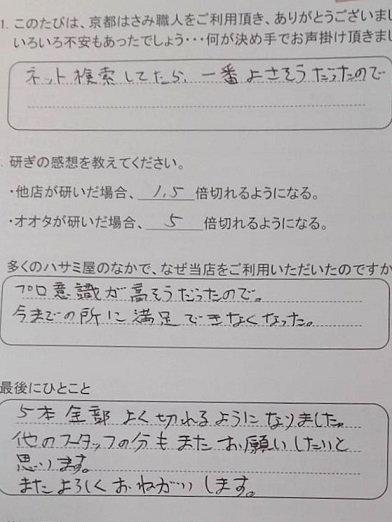 1. このたびは、京都はさみ職人をご利用頂き、ありがとうございまし
いろいろ不安もあったでしょう･･･何が決め手でお声掛け頂きまし
ネット検索してたら、一番よさそうだったので
研ぎの感想を教えてください。
・他店が研いだ場合、1,5倍切れるようになる。
・オオタが研いだ場合、5倍切れるようになる。
多くのハサミ屋のなかで、なぜ当店をご利用いただいたのですか
プロ意識が高そうだったので。
今までの所に満足できなくなった。
最後にひとこと
5本全部よく切れるようになりました。
他のスタッフの分もまたお願いしたいと
思います。
またよろしくおねがいします。